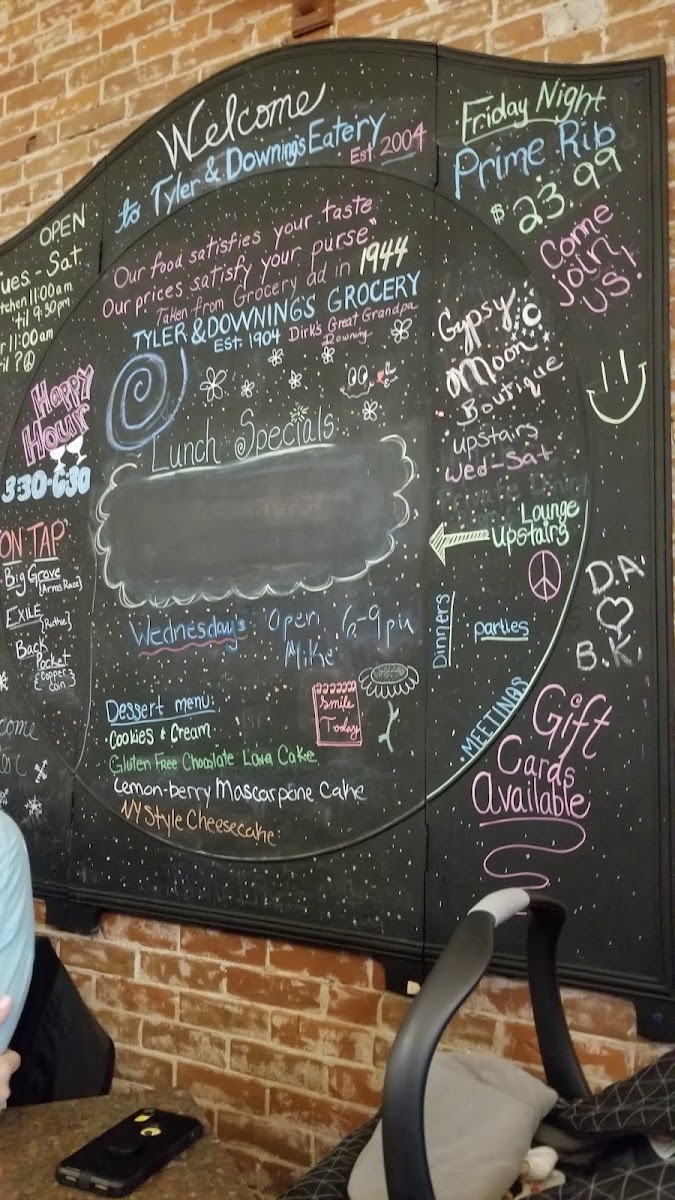 Welcome
to Tyler & Downing's Eatery
Est 2004
"Our food satisfies your taste
Our prices satisfy your purse"
Taken from Grocery ad in 1944
TYLER & DOWNING'S GROCERY
EST. 1904 Dirk's Great Grandpa
Downing
Lunch Specials
Wednesday's Open 6-9pm
Mike
Dessert menu:
Cookies & Cream
Gluten Free Chocolate Lava Cake
Lemon-berry Mascarpone Cake
NY Style Cheesecake
Smile
Today
OPEN
ues - Sat
tchen 11:00 am
til 9:30 pm
r 11:00 am
til ?
Happy
Hour
3:30-6:30
"ON TAP"
Big Grove
{Arms Race}
EXILE
{Ruthie}
Back
Pocket
{Copper
Coin}
come
Friday Night
Prime Rib
$23.99
Come
join
us!
Gypsy
Moon
Boutique
upstairs
Wed-Sat
Lounge
Upstairs
Dinners
parties
MEETINGS
D.A.
B.K.
Gift
Cards
Available